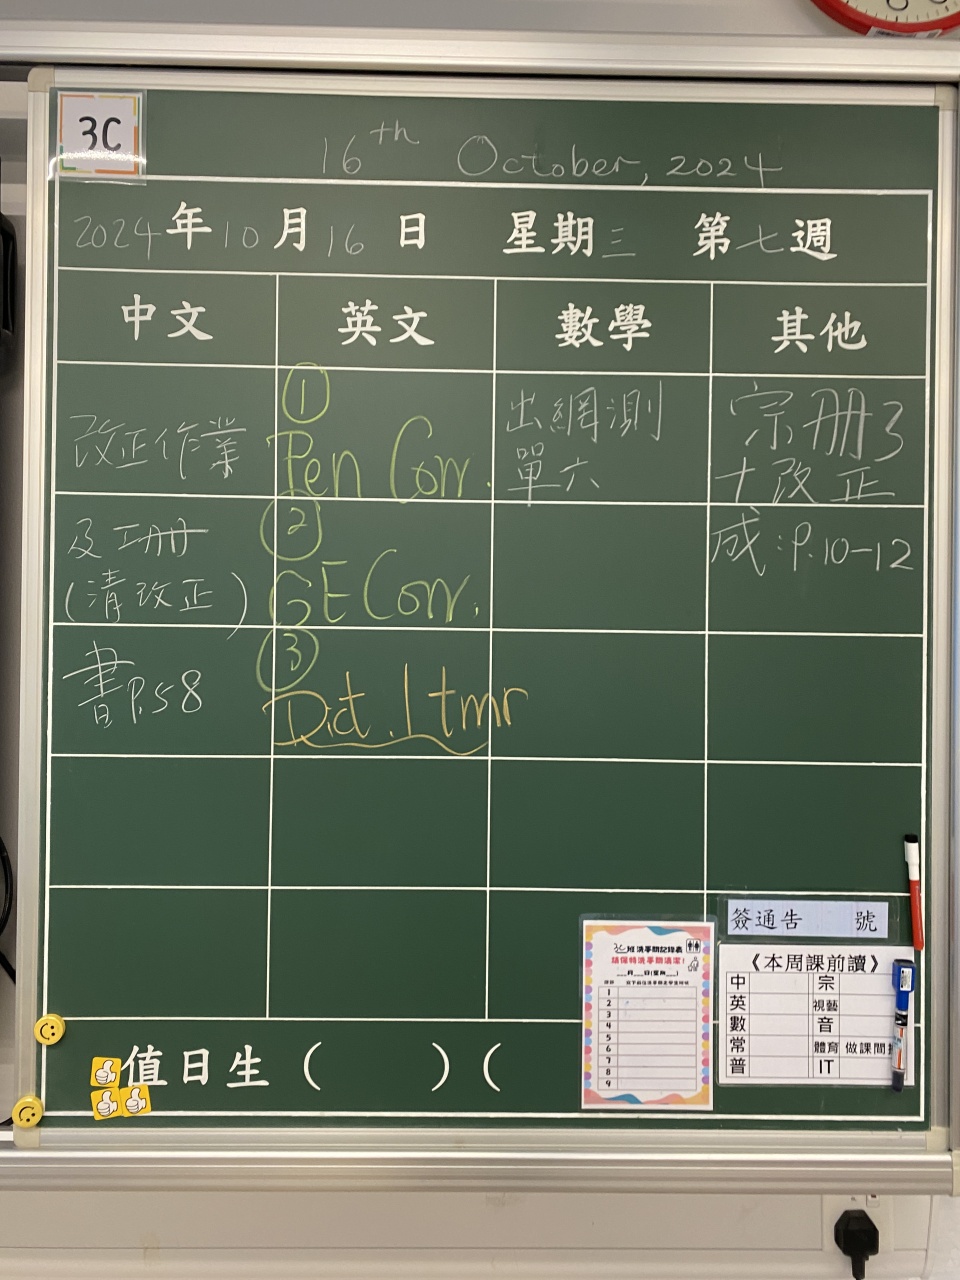 3C
16th October, 2024
2024年10月16日 星期三 第七週
中文 英文 數學 其他
改正作業
及工冊
(清改正)
書P.58
①
Pen Corr.
②
GE Corr.
③
Dict. 1 tmr
出網測
單六
宗册3
+改正
成:P.10-12
簽通告 號
3C班洗手間記錄表
請保持洗手間清潔!
__月__日(星期__)
1
2
3
4
5
6
7
8
9
《本周課前讀》
中 宗
英 視藝
數 音
常 體育 做課間
普 IT
值日生( )(